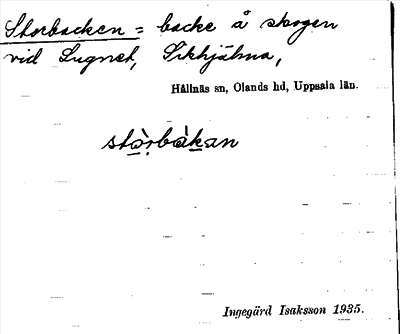 Storbacken = backe å skogen
vid Lugnet, Sikhjälma,
Hållnäs sn, Olands hd, Uppsala län.
stòrbàkan
Ingegärd Isaksson 1935.